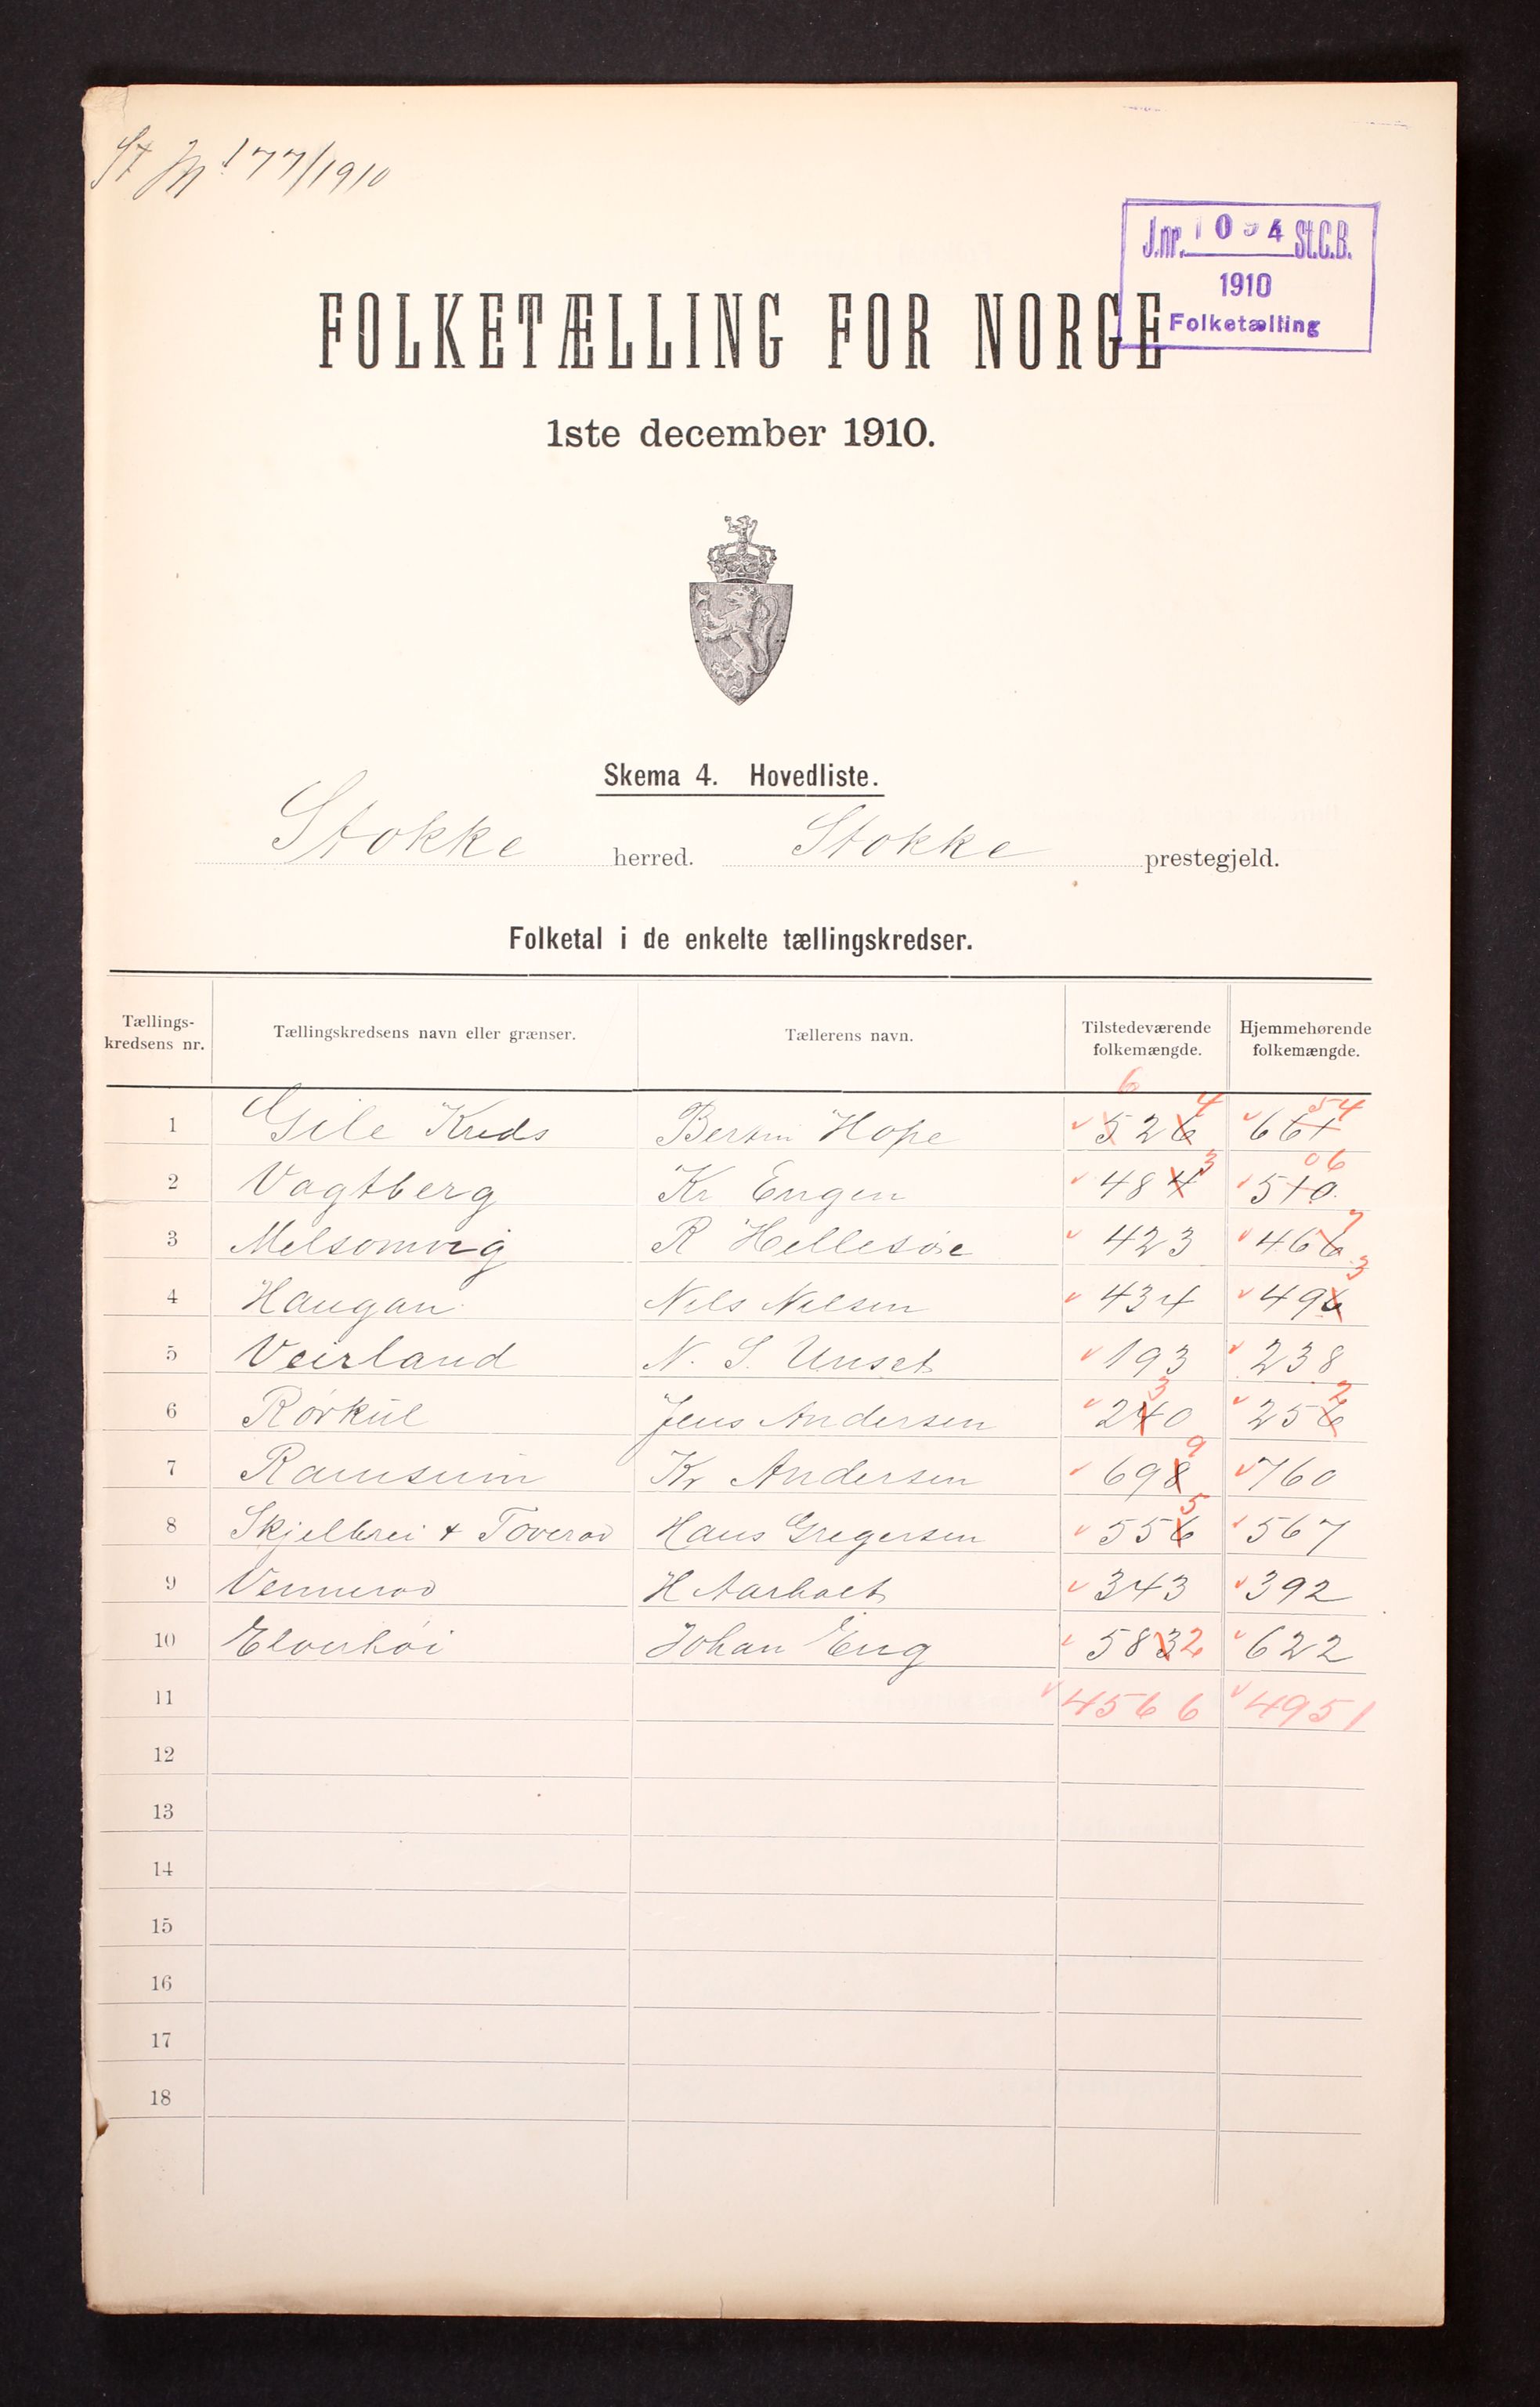 St M 177/1910
J.nr. 1094 St.C.B.
1910
Folketælling
FOLKETÆLLING FOR NORGE
1ste december 1910.
Skema 4. Hovedliste.
Stokke herred. Stokke prestegjeld.
Folketal i de enkelte tællingskredser.
Tællings-kredsens nr. Tællingskredsens navn eller grænser. Tællerens navn. Tilstedeværende folkemængde. Hjemmehørende folkemængde.
6 4 54
1 Gile Kreds Hope 526 661
3 06
2 Vagtberg Kr Engen 484 510
7
3 Melsomvig R Hellesøe 423 466
3
4 Haugan Nils Nilsen 434 496
5 Veierland N. S. Unset 193 238
3 2
6 Rørkil Jens Andersen 240 256
9
7 Ramsum Kr Andersen 698 760
5
8 Skjelbrei & Toverød Hans Gregersen 556 567
9 Vennerød H Aarholt 343 392
10 Elverhøi Johan Eng 5832 622
11 4566 4951
12
13
14
15
16
17
18